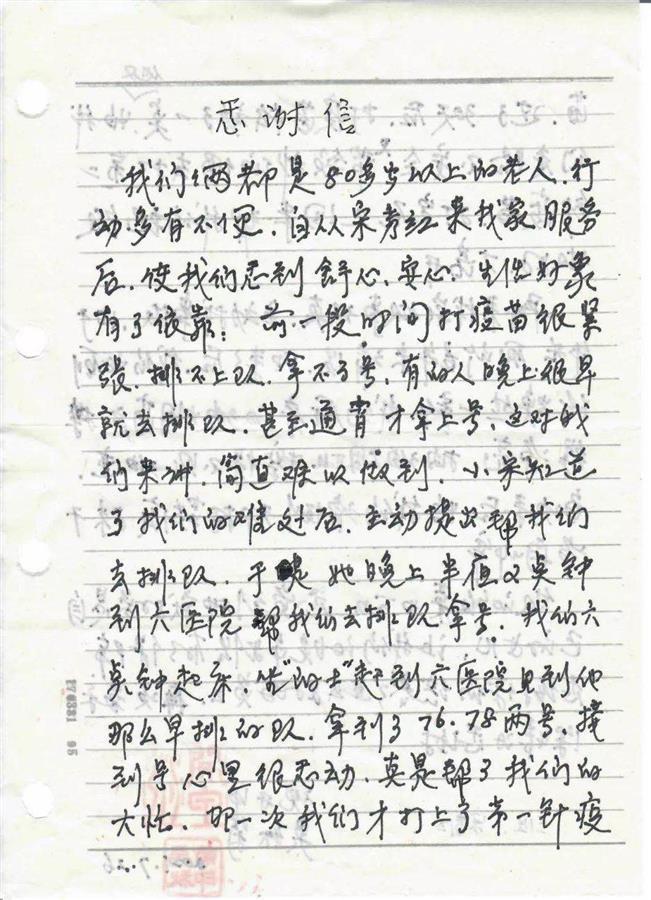 感谢信
我们俩都是80多岁以上的老人.行
动多有不便.自从宋考红来我家服务
后.使我们感到舒心、安心、生活好象
有了依靠；前一段时间打疫苗很紧
张.排不上队.拿不了号.有的人晚上很早
就去排队.甚至通宵才拿上号、这对我
们来讲.简直难以做到.小宋知道
了我们的难处后.主动提出帮我们
去排队.于是她晚上半夜2点钟
到六医院帮我们去排队拿号.我们六
点钟起床.坐"的士"赶到六医院见到他
那么早排的队.拿到了76.78两号.接
到号心里很感动.真是帮了我们的
大忙.那一次我们才打上了第一针疫
EP70381 95